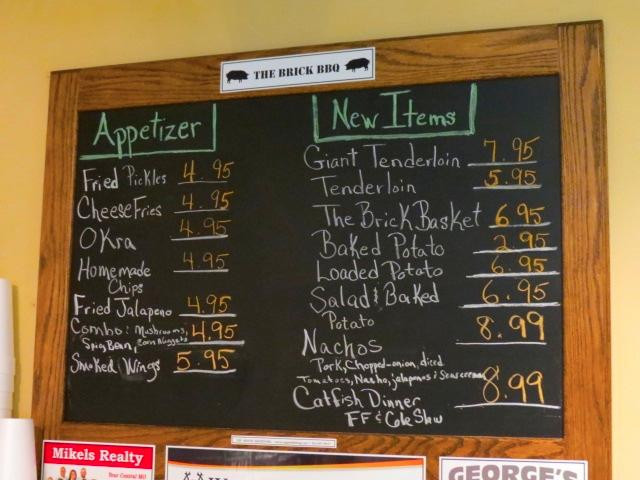 THE BRICK BBQ
Appetizer
Fried Pickles 4.95
Cheese Fries 4.95
OKra 4.95
Homemade 4.95
Chips
Fried Jalapeno 4.95
Combo: Mushrooms, 4.95
Spicy Bean, Corn Nuggets
Smoked Wings 5.95
New Items
Giant Tenderloin 7.95
Tenderloin 5.95
The Brick Basket 6.95
Baked Potato 2.95
Loaded Potato 6.95
Salad & Baked 6.95
Potato
Nachos 8.99
Pork, Chopped-onion, diced
Tomatoes, Nacho, jalapenos & Sour cream
Catfish Dinner 8.99
FF & Cole Slaw
Mikels Realty
Your Central MO
GEORGE'S